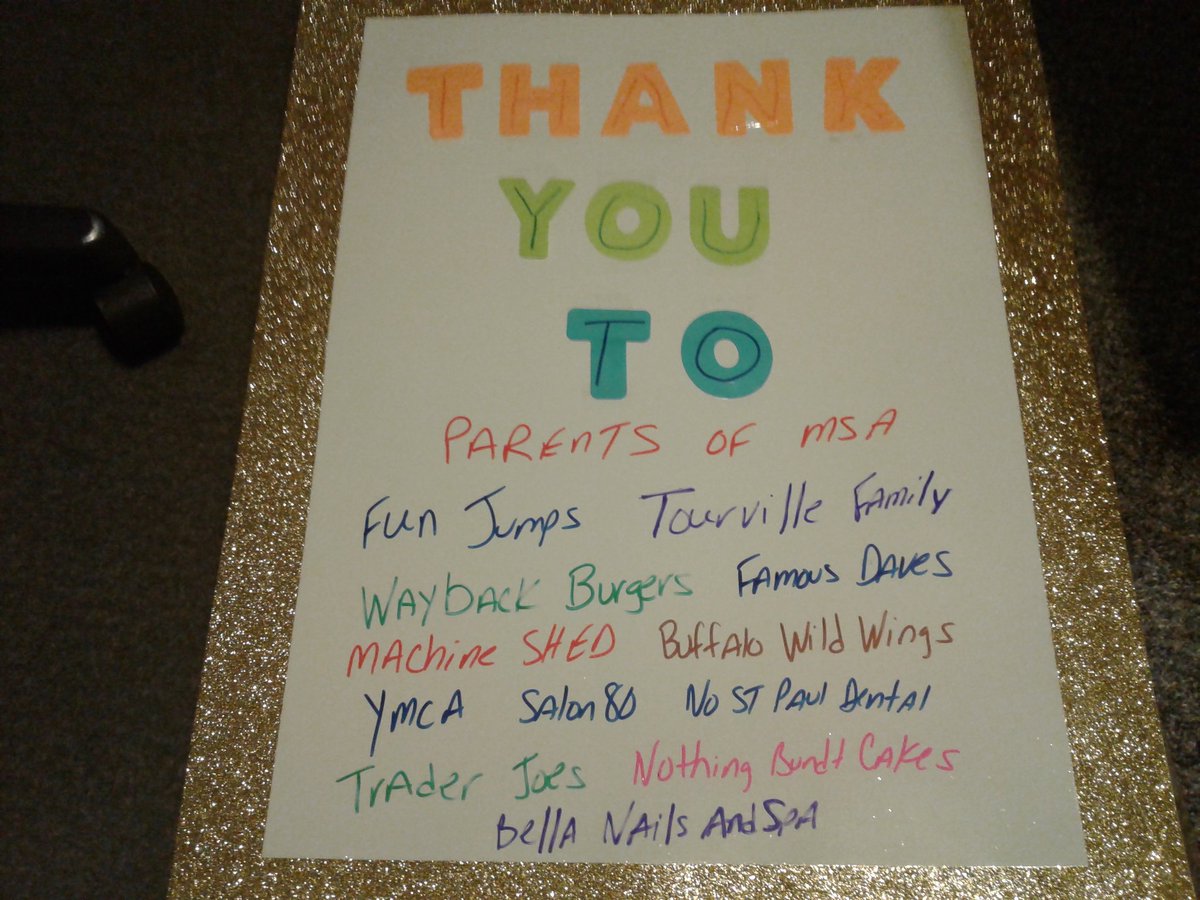 THANK
YOU
TO
PARENTS OF MSA
FUN JUMPS Tourville FAmily
WAYbACK Burgers FAmous DAves
MAChine SHED BuffAlo Wild Wings
YMCA SAlon 80 No ST PAul Dental
TrAder Joes Nothing Bundt CAkes
Bella NAils And SpA